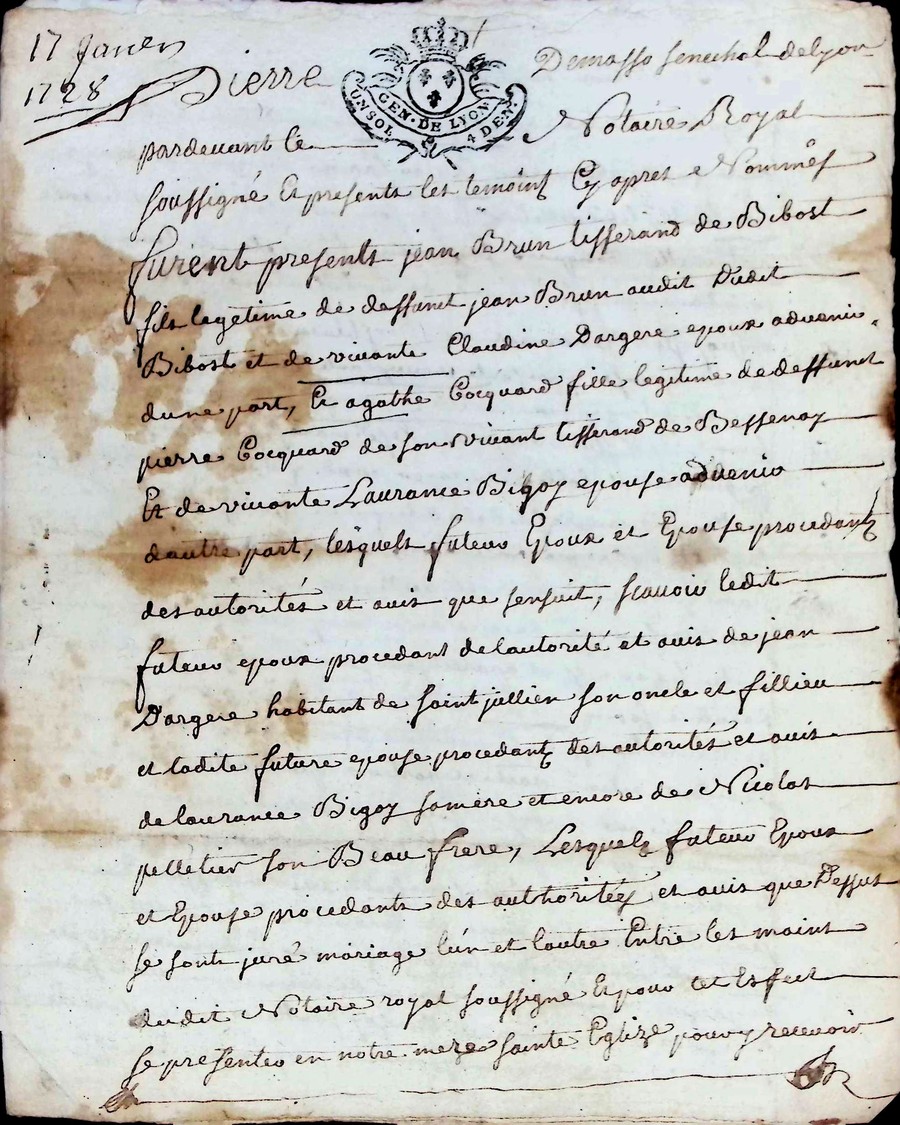 17 Janvier
1728
Pierre Demasso senechal de lyon
UN SOL GEN · DE LYON 4 DEN ·
pardevant Le Notaire Royal
soussigné Et presents les temoins Cy apres Nommés
furent presents jean Brun tisserand de Bibost
fils legetime de deffunt jean Brun audit Dudit
Bibost et de vivante Claudine Dargere epoux advenir
dune part, Et agathe Cocquard fille legitime de deffunt
pierre Cocquard de son vivant tisserand de Bessenay
Et de vivante Laurance Bigoy epouse advenir
dautre part, lesquels futeur Epoux et Epouse procedants
des autorités et avis que sensuit, scavoir ledit
futeur epoux procedant de lautorité et avis de jean
Dargere habitant de saint jullien son oncle et fillieu
et ladite future epouse procedant des autorités et avis
de laurance Bigoy samere et encore de Nicolas
pelletier son Beau frere, Lesquels futeur Epoux
et Epouse procedants des authoritéz et avis que Dessus
se sont juré mariage lún et lautre Entre les mains
dudit Notaire royal soussigné Et pour cet Esfect
se presenter en notre mere sainte Eglize pour y recevoir